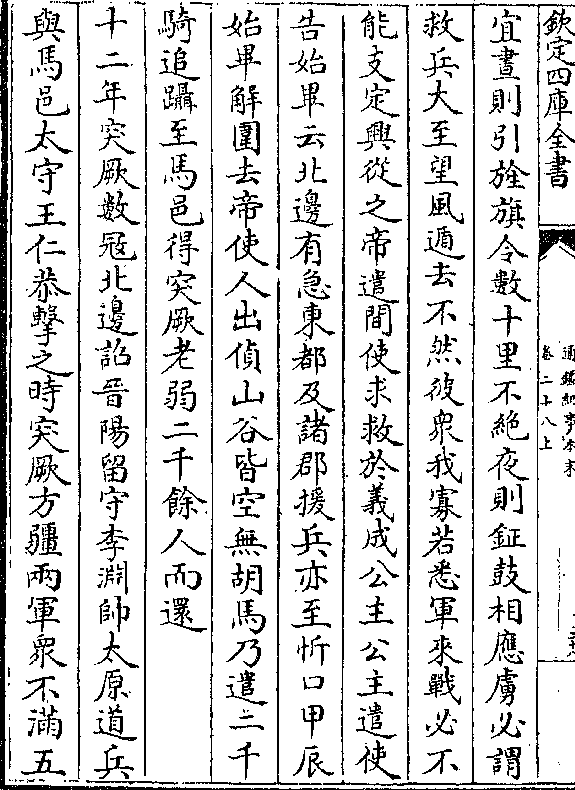 欽定四庫全書
通鑑紀事本末
卷二十八上
宜晝則引旌旗令數十里不絶夜則鉦鼓相應虜必謂
救兵大至望風遁去不然彼衆我寡若悉軍來戰必不
能支定興從之帝遣間使求救於義成公主公主遣使
告始畢云北邊有急東都及諸郡援兵亦至忻口甲辰
始畢解圍去帝使人出偵山谷皆空無胡馬乃遣二千
騎追躡至馬邑得突厥老弱二千餘人而還
十二年突厥數冦北邊詔晉陽留守李淵帥太原道兵
與馬邑太守王仁恭擊之時突厥方疆兩軍衆不滿五